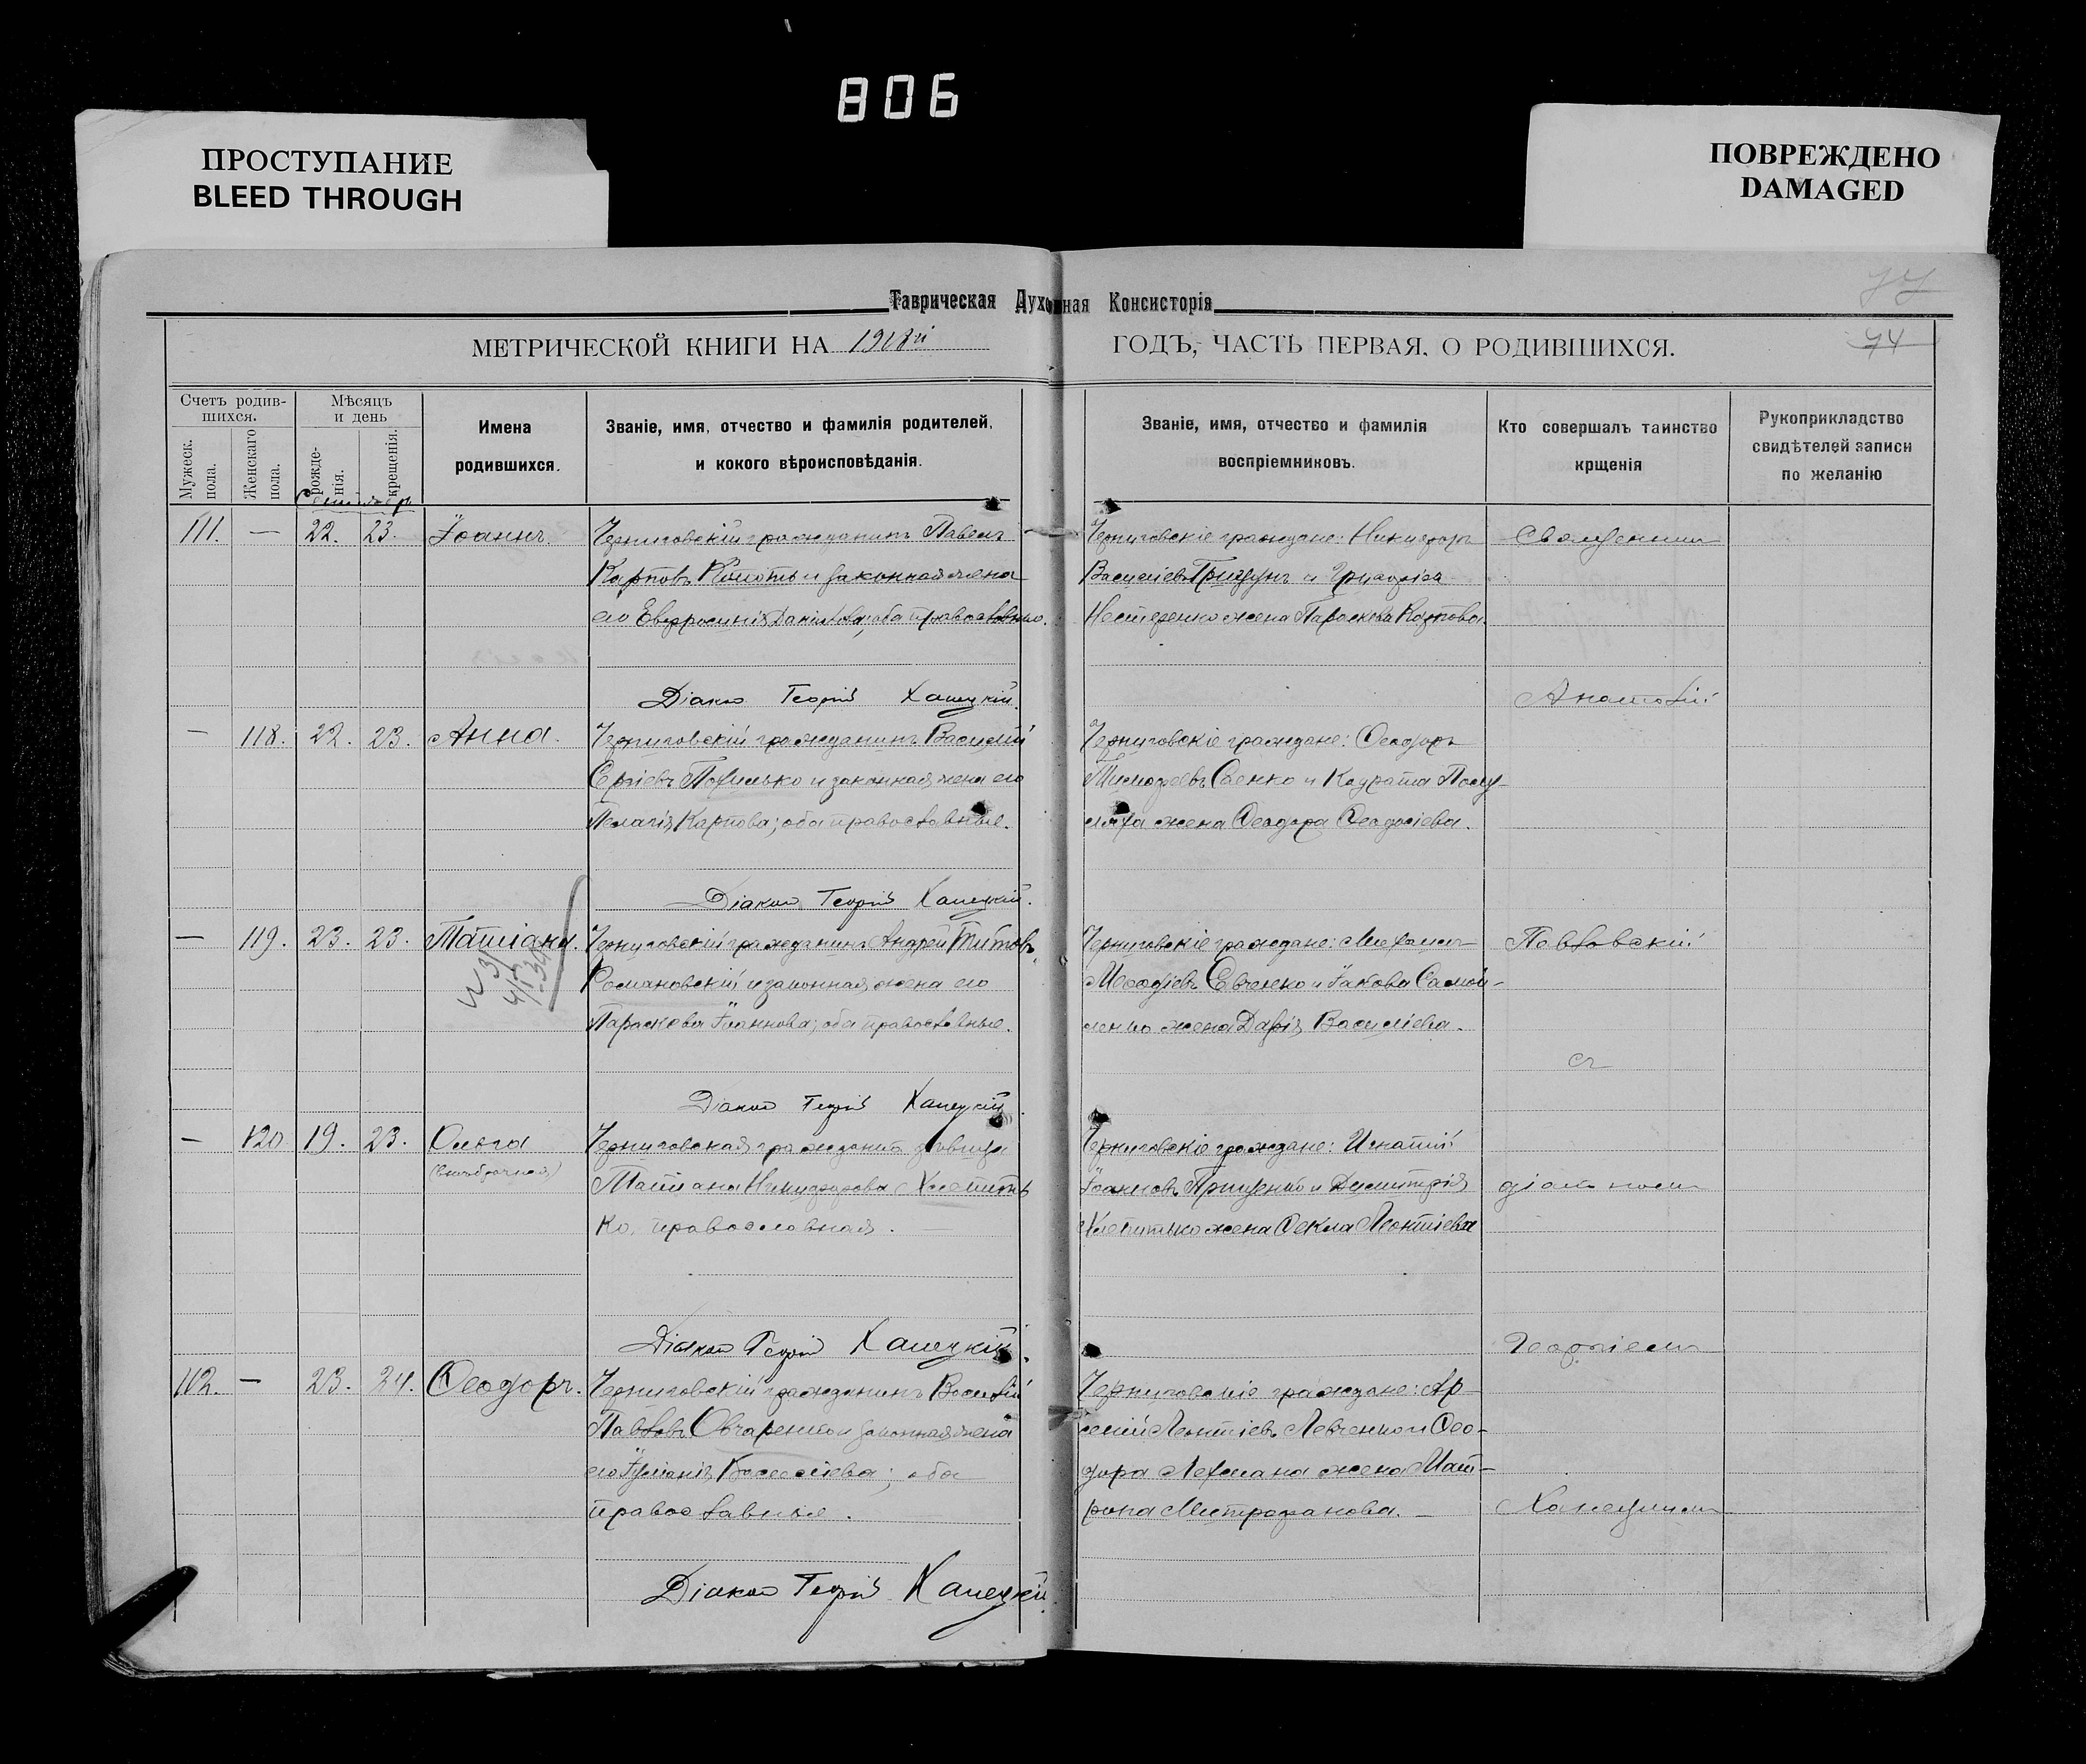 806
ПРОСТУПАНИЕ
BLEED THROUGH
ПОВРЕЖДЕНО
DAMAGED
Таврическая Духовная Консисторія
77
74
МЕТРИЧЕСКОЙ КНИГИ НА 1918й ГОДЪ, ЧАСТЬ ПЕРВАЯ, О РОДИВШИХСЯ.
Счетъ родив-
шихся.
Мужеск. пола.
Женскаго пола.
Мѣсяцъ
и день
рожде-
нія.
крещенія.
Имена
родившихся.
Званіе, имя, отчество и фамилія родителей,
и кокого вѣроисповѣданія.
Званіе, имя, отчество и фамилія
воспріемниковъ.
Кто совершалъ таинство
крщенія
Рукоприкладство
свидѣтелей записи
по желанію
111. — 22. 23. Іоаннъ.
Черниговскій гражданинъ Павелъ
Карповъ и законная жена
его Евфросинія Данилова; оба православные.
Діаконъ Георгій Ханецкій.
Черниговскіе граждане: Никифоръ
Василіевъ Грицунъ и Григорія
Нестеренко жена Параскева Карпова.
Священник
Анатолій
— 118. 22. 23. Анна.
Черниговскій гражданинъ Василій
и законная жена его
Пелагія Карпова; оба православные.
Діаконъ Георгій Ханецкій.
Черниговскіе граждане: Ѳеодоръ
Тимофеевъ Саенко и Кодрата
жена Ѳеодора Ѳеодосіева.
— 119. 23. 23. Татіана.
Черниговскій гражданинъ Андрей Титовъ
Романовскій и законная жена его
Параскева Іоаннова; оба православные.
Діаконъ Георгій Ханецкій.
Черниговскіе граждане: Михаилъ
Меѳодіевъ Евченко и Іакова Самой-
ленко жена Дарія Василіева.
Павловскій
съ
— 120 19. 23. Ольга
(внѣбрачная)
Черниговская гражданка дѣвица
Татіана Никифорова Хлепить-
ко, православная.
Діаконъ Георгій Ханецкій.
Черниговскіе граждане: Игнатій
Іоанновъ Гриценко и Димитрія
Хлепитько жена Ѳекла Леонтіева
діаконом
Георгіемъ
112. — 23. 24. Ѳеодоръ.
Черниговскій гражданинъ Василій
Павловъ Овчаренко и законная жена
его Іуліанія Василіева; оба
православные.
Діаконъ Георгій Ханецкій
Черниговскіе граждане: Ар-
сеній Леонтіевъ Левченко и Ѳео-
дора Лехмана жена Мат-
рона Митрофанова.
Ханецкимъ